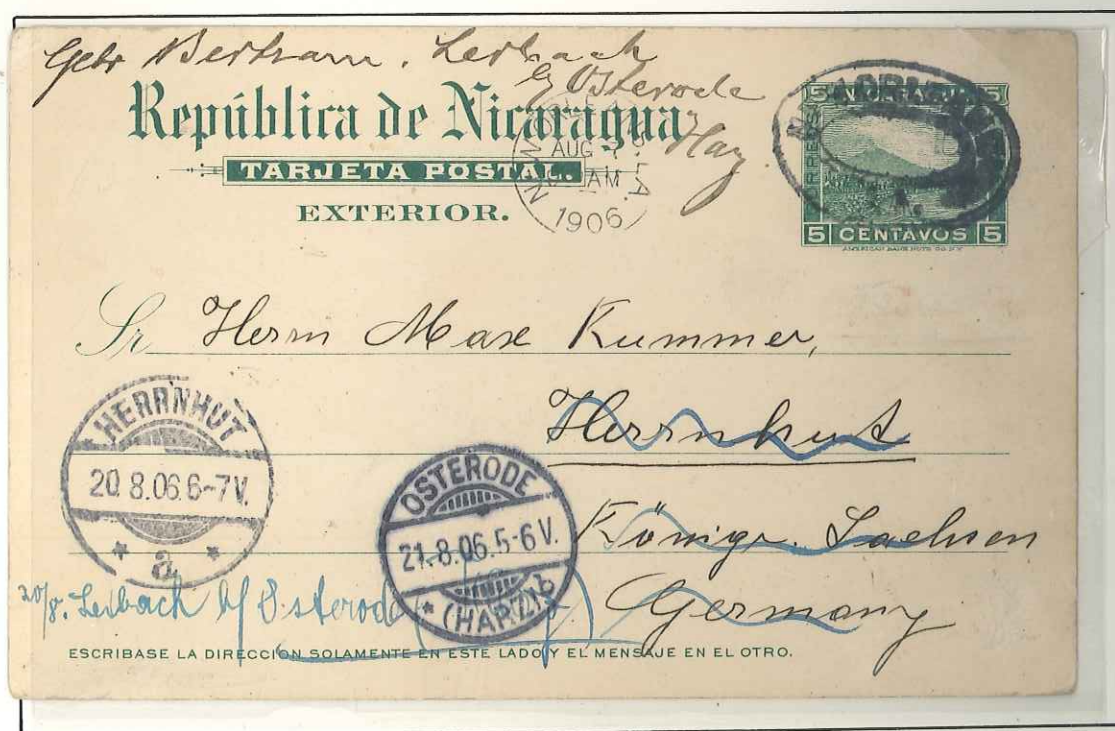 Gebr Bertram. Lerbach
b/ Osterode
Harz
República de Nicaragua
TARJETA POSTAL.
EXTERIOR.
NEW ORLEANS, LA.
AUG
AM
1906
5 NICARAGUA 5
5 CENTAVOS 5
AMERICAN BANK NOTE CO. N.Y.
Sr. Herrn Max Kummer,
Herrnhut
HERRNHUT
20.8.06.6-7V.
* a *
OSTERODE
21.8.06.5-6V.
* (HARZ) b
Königr. Sachsen
Germany
20/8. Lerbach b/Osterode
ESCRIBASE LA DIRECCION SOLAMENTE EN ESTE LADO Y EL MENSAJE EN EL OTRO.